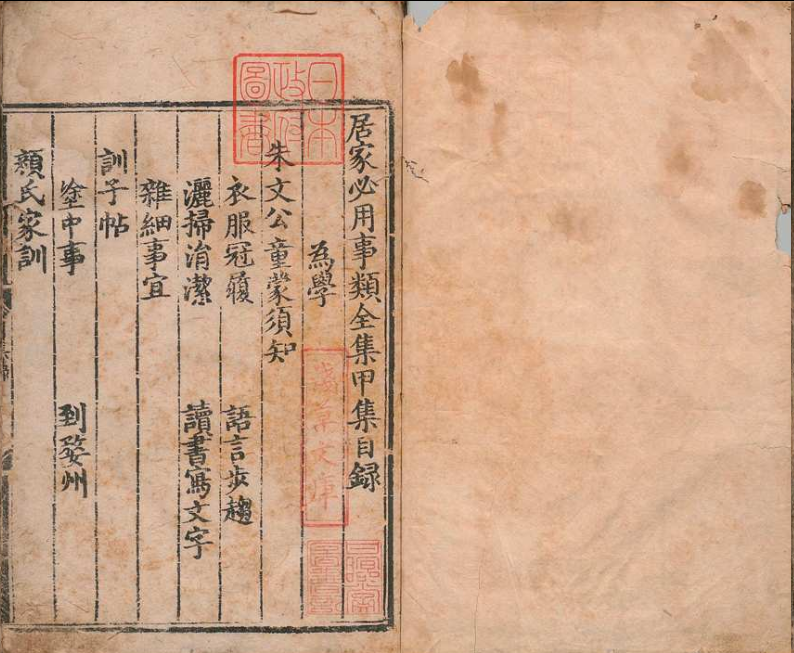 居家必用事類全集甲集目録
為學
朱文公童蒙須知
衣服冠履 語言步趨
灑掃涓潔 讀書寫文字
雜細事宜
訓子帖
塗中事 到婺州
顏氏家訓
日本
政府
圖書
文庫